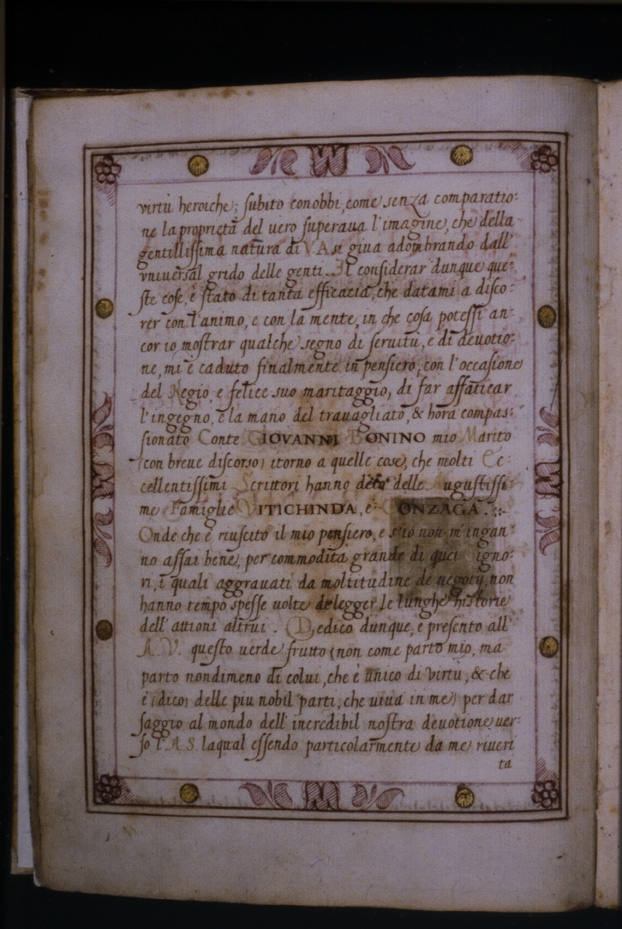 virtù heroiche; subito conobbi, come senza comparatio:
ne la proprietà del uero superaua l'imagine, che della
gentillissima natura di V A si giua adombrando dall'
vniuersal grido delle genti. Il considerar dunque que:
ste cose, è stato di tanta efficacia, che datami a disco:
rer con l'animo, e con la mente, in che cosa potessi an:
cor io mostrar qualche segno di seruitù, e di deuotio:
ne, mi è caduto finalmente in pensiero, con l'occasione
del Regio, e felice suo maritaggio, di far affaticar
l'ingegno, e la mano del trauagliato, & hora compas:
sionato Conte GIOVANNI BONINO mio Marito
(con breue discorso) itorno a quelle cose, che molti Ec:
cellentissimi Scrittori hanno detto delle Augustissi:
me Famiglie VITICHINDA, e GONZAGA.
Onde che è riuscito il mio pensiero, e s'io non m'ingan:
no assai bene, per commodità grande di quei Signo:
ri, i quali aggrauati da moltitudine de negotij, non
hanno tempo spesse uolte de legger le lunghe historie
dell'attioni altrui. Dedico dunque, e presento all'
A. V. questo uerde frutto (non come parto mio, ma
parto nondimeno di colui, che è unico di virtù, & che
è (dico) delle più nobil parti, che uiua in me) per dar
saggio al mondo dell'incredibil nostra deuotione uer:
so l'A S. laqual essendo particolarmente da me riueri
ta